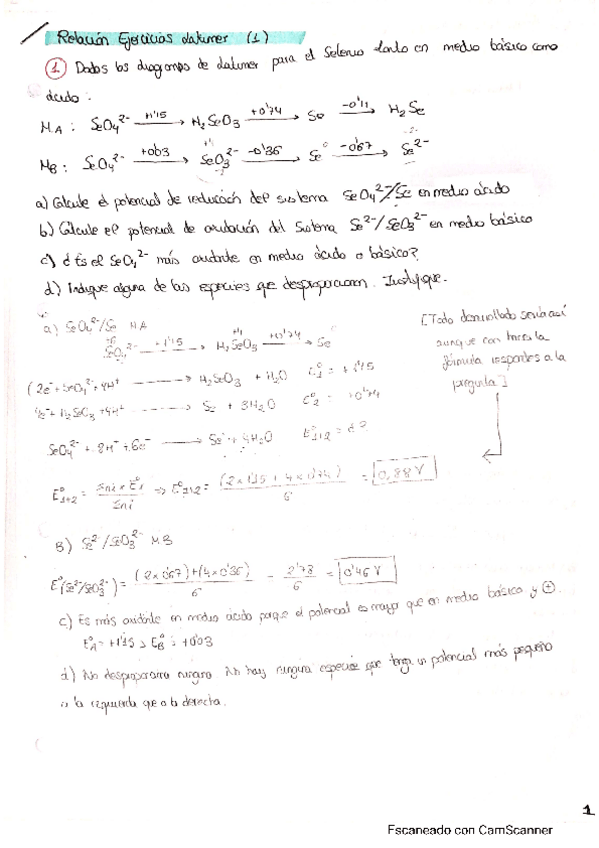 Relación Ejercicios Latimer (1)
① Dados los diagramas de Latimer para el Selenio tanto en medio básico como
ácido:
M.A: SeO₄²⁻ —+1'15→ H₂SeO₃ —+0'74→ Se —-0'11→ H₂Se
MB: SeO₄²⁻ —+0'03→ SeO₃²⁻ —-0'36→ Se —-0'67→ Se²⁻
a) Calcule el potencial de reducción del sistema SeO₄²⁻/Se en medio ácido
b) Calcule el potencial de oxidación del Sistema Se²⁻/SeO₃²⁻ en medio básico
c) ¿Es el SeO₄²⁻ más oxidante en medio ácido o básico?
d) Indique alguna de las especies que desproporcionan. Justifique.
a) SeO₄²⁻/Se MA
SeO₄²⁻ —+1'15→ H₂SeO₃ —+0'74→ Se
[Todo desarrollado sería así
aunque con la
fórmula respondes a la
pregunta]
(2e⁻ + SeO₄²⁻ + 4H⁺ → H₂SeO₃ + H₂O E°₁ = +1'15
4e⁻ + H₂SeO₃ + 4H⁺ → Se + 3H₂O E°₂ = +0'74
SeO₄²⁻ + 8H⁺ + 6e⁻ → Se + 4H₂O E°₁₊₂ = ¿?
E°₁₊₂ = Σni x E°i / Σni ⇒ E°₁₊₂ = (2 x 1'15 + 4 x 0'74) / 6 = 0'88 V
B) Se²⁻/SeO₃²⁻ MB
E°(Se²⁻/SeO₃²⁻) = (2 x 0'67) + (4 x 0'36) / 6 = 2'78 / 6 = 0'46 V
c) Es más oxidante en medio ácido porque el potencial es mayor que en medio básico y ⊕.
E°A = +1'15 > E°B = +0'03
d) No desproporciona ninguna. No hay ninguna especie que tenga un potencial más pequeño
a la izquierda que a la derecha.
1
Escaneado con CamScanner